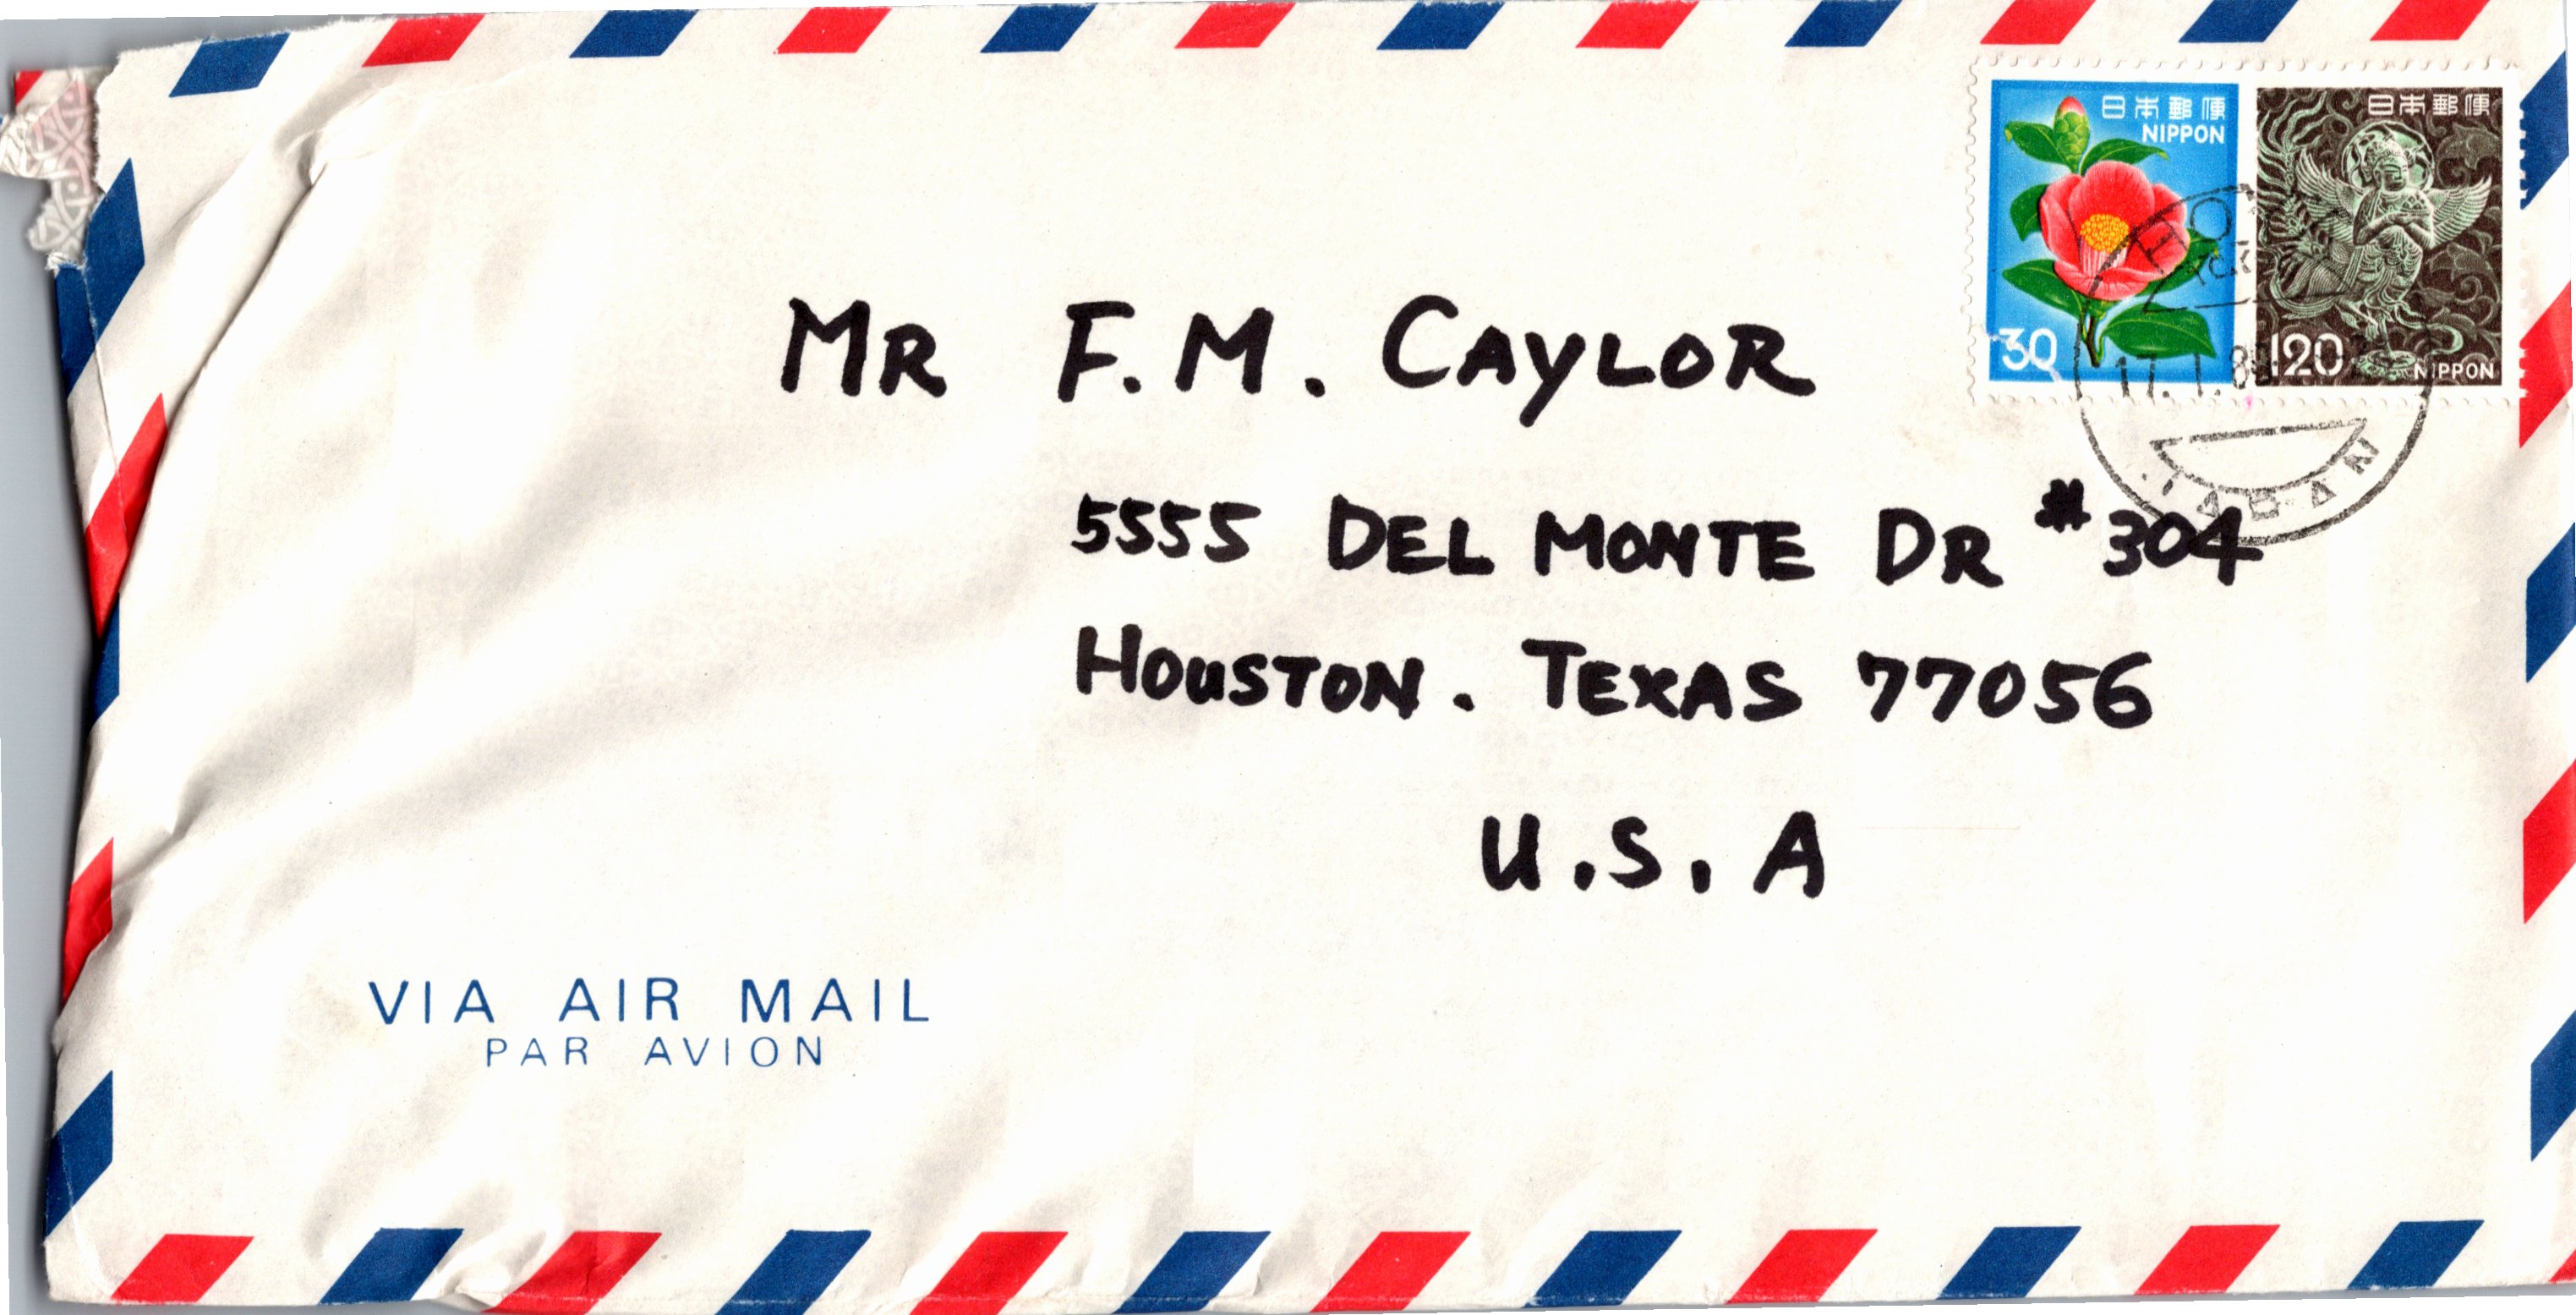 日本郵便
NIPPON
30
日本郵便
120
NIPPON
JAPAN
MR F.M. CAYLOR
5555 DEL MONTE DR #304
HOUSTON. TEXAS 77056
U.S.A
VIA AIR MAIL
PAR AVION